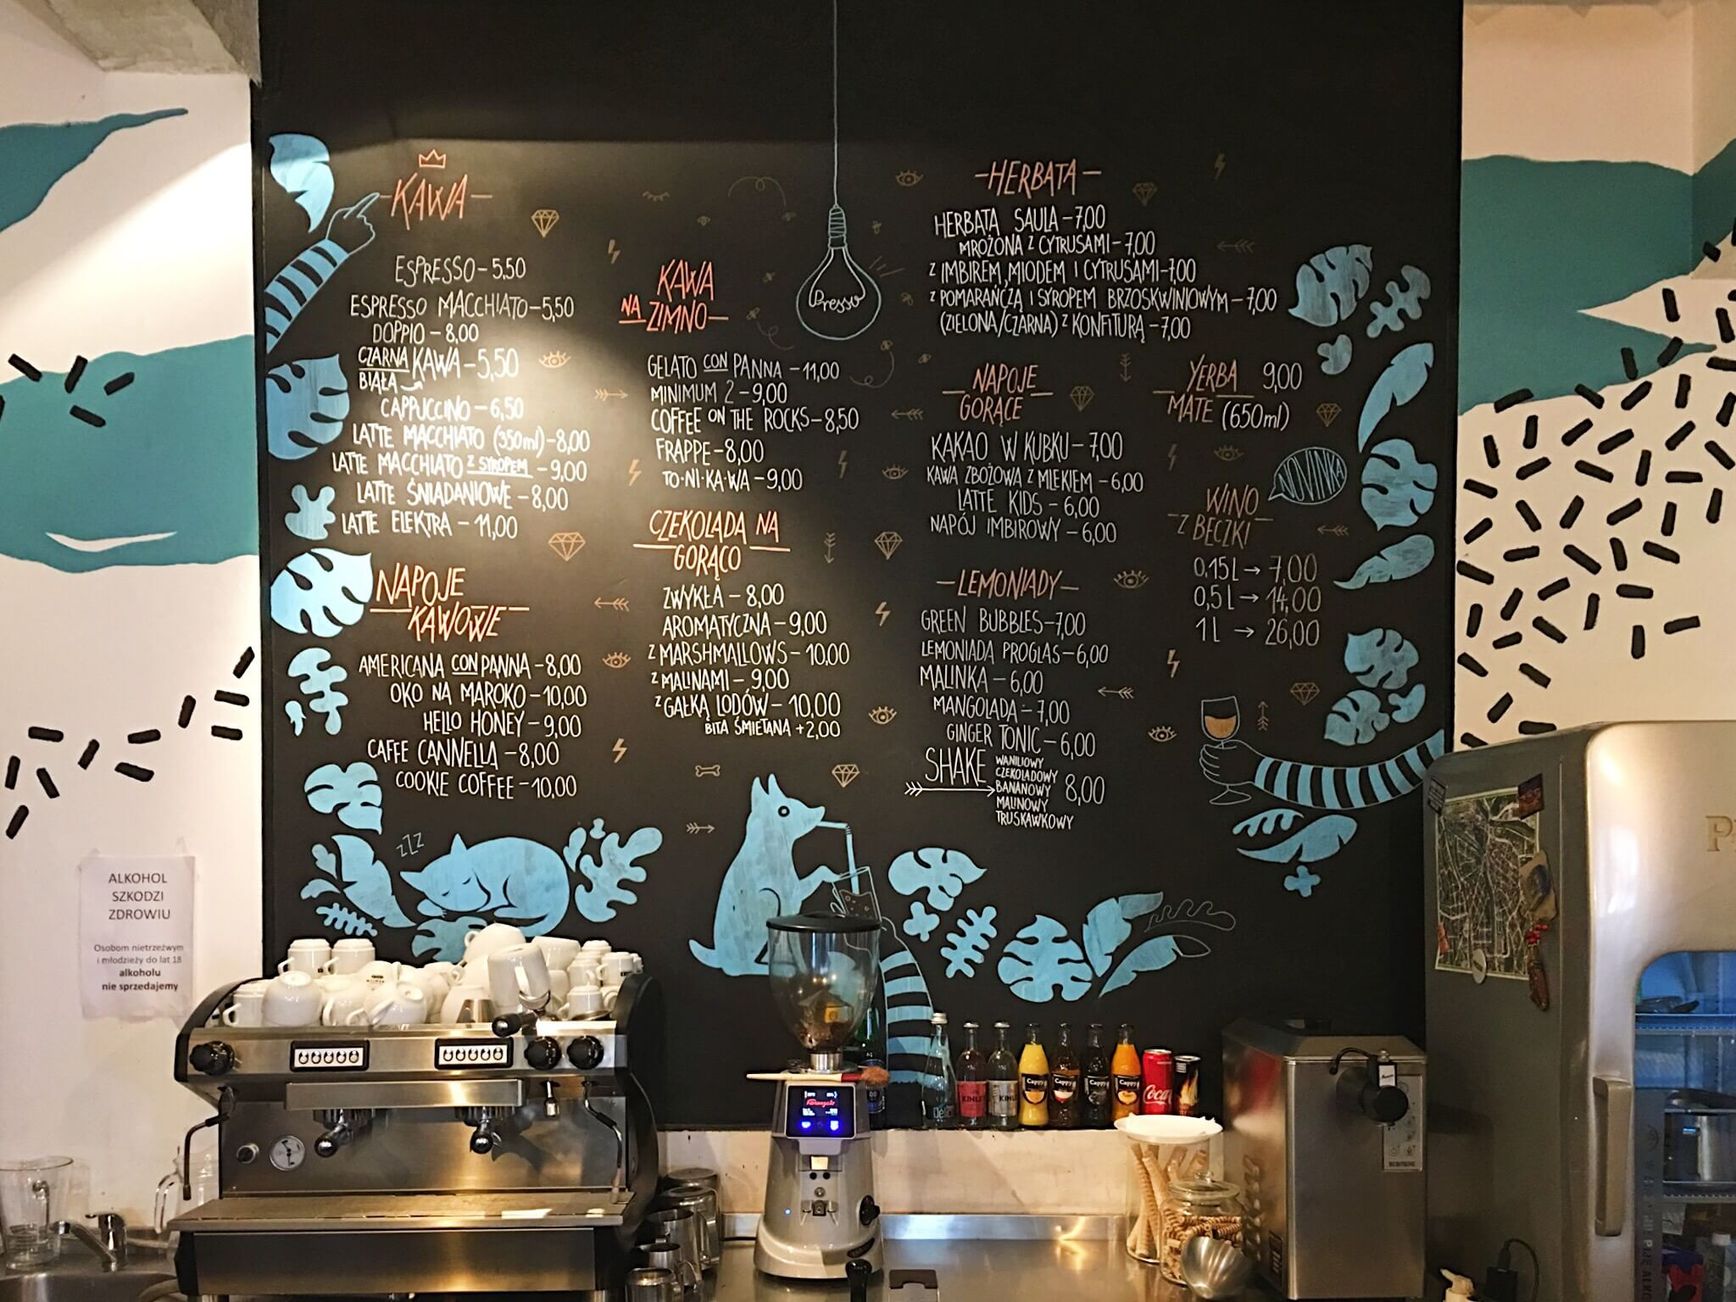 KAWA
ESPRESSO - 5,50
ESPRESSO MACCHIATO - 5,50
DOPPIO - 8,00
CZARNA KAWA - 5,50
BIAŁA
CAPPUCCINO - 6,50
LATTE MACCHIATO (350ml) - 8,00
LATTE MACCHIATO Z SYROPEM - 9,00
LATTE ŚNIADANIOWE - 8,00
LATTE ELEKTRA - 11,00
NAPOJE
KAWOWE
AMERICANA CON PANNA - 8,00
OKO NA MAROKO - 10,00
HELLO HONEY - 9,00
CAFFE CANNELLA - 8,00
COOKIE COFFEE - 10,00
zZZ
KAWA
NA ZIMNO
GELATO CON PANNA - 11,00
MINIMUM 2 - 9,00
COFFEE ON THE ROCKS - 8,50
FRAPPE - 8,00
TO·NI·KA·WA - 9,00
CZEKOLADA NA
GORĄCO
ZWYKŁA - 8,00
AROMATYCZNA - 9,00
Z MARSHMALLOWS - 10,00
Z MALINAMI - 9,00
Z GAŁKĄ LODÓW - 10,00
BITA ŚMIETANA +2,00
Presso
HERBATA
HERBATA SAULA - 7,00
MROŻONA Z CYTRUSAMI - 7,00
Z IMBIREM, MIODEM I CYTRUSAMI - 7,00
Z POMARAŃCZĄ I SYROPEM BRZOSKWINIOWYM - 7,00
(ZIELONA/CZARNA) Z KONFITURĄ - 7,00
NAPOJE
GORĄCE
KAKAO W KUBKU - 7,00
KAWA ZBOŻOWA Z MLEKIEM - 6,00
LATTE KIDS - 6,00
NAPÓJ IMBIROWY - 6,00
LEMONIADY
GREEN BUBBLES - 7,00
LEMONIADA PROGLAS - 6,00
MALINKA - 6,00
MANGOLADA - 7,00
GINGER TONIC - 6,00
SHAKE
WANILIOWY
CZEKOLADOWY
BANANOWY
MALINOWY
TRUSKAWKOWY
8,00
YERBA 9,00
MATE (650ml)
NOWINKA
WINO
Z BECZKI
0,15L → 7,00
0,5L → 14,00
1L → 26,00
ALKOHOL
SZKODZI
ZDROWIU
Osobom nietrzeźwym
i młodzieży do lat 18
alkoholu
nie sprzedajemy
KINLEY
KINLEY
Cappy
Cappy
Cappy
Cappy
Coca